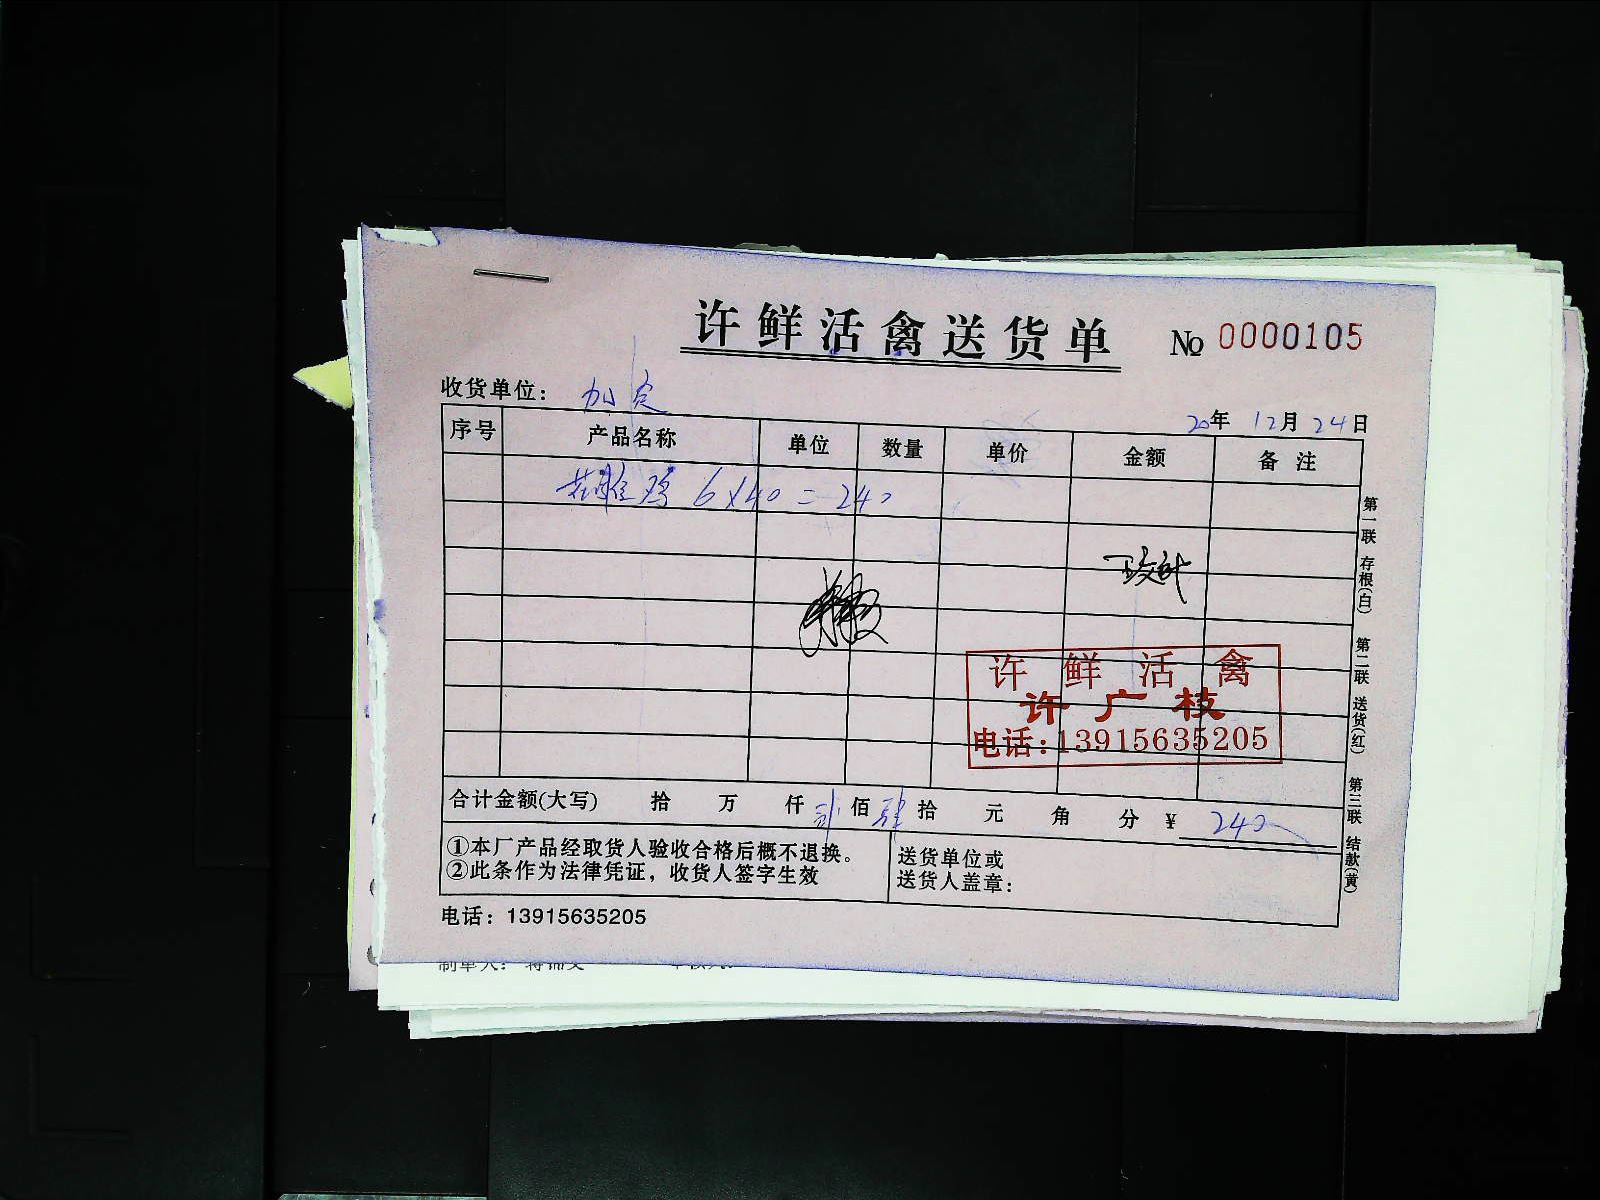 许鲜活禽送货单 № 0000105
收货单位：加定
20年 12月 24日
序号 产品名称 单位 数量 单价 金额 备注
花雕鸡 6×40=240
许鲜活禽
许广枝
电话:13915635205
合计金额(大写) 拾 万 仟 贰佰 肆拾 元 角 分 ¥ 240
①本厂产品经取货人验收合格后概不退换。
②此条作为法律凭证，收货人签字生效
送货单位或
送货人盖章：
电话：13915635205
第一联 存根(白) 第二联 送货(红) 第三联 结款(黄)